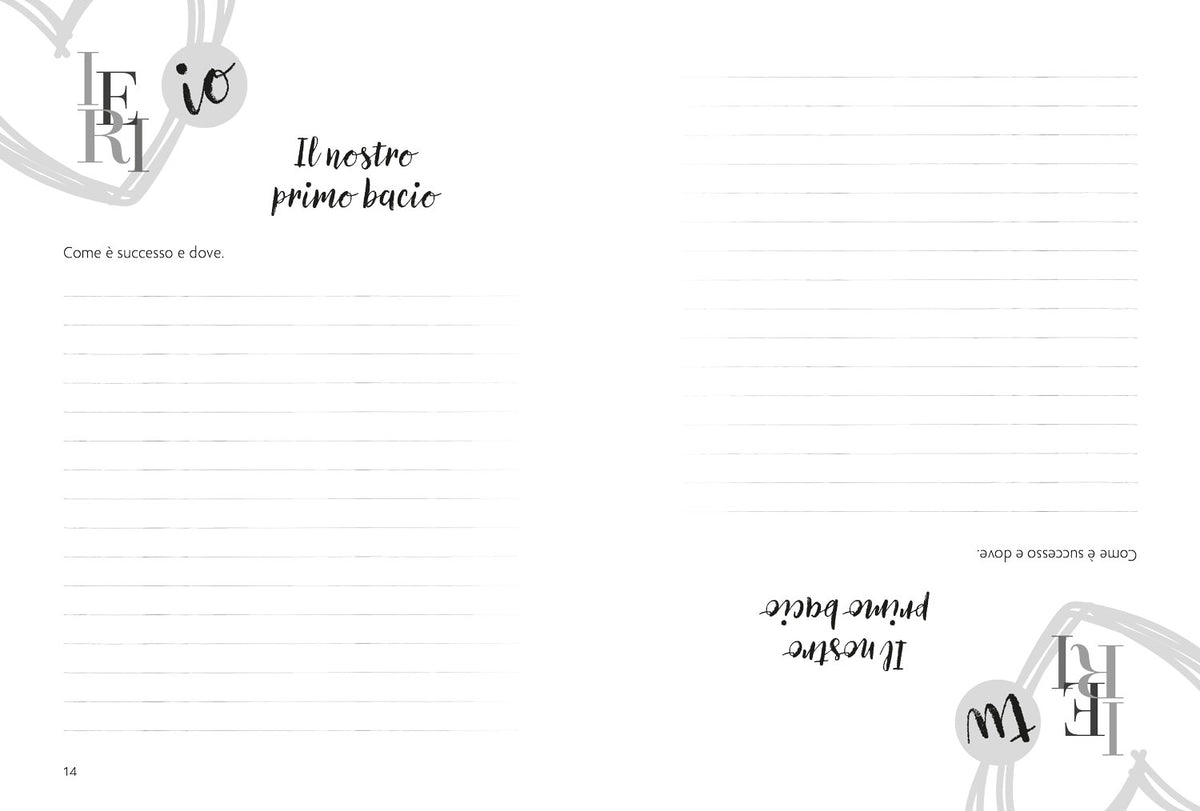 IERI
io
Il nostro
primo bacio
Come è successo e dove.
14
IERI
tu
Il nostro
primo bacio
Come è successo e dove.